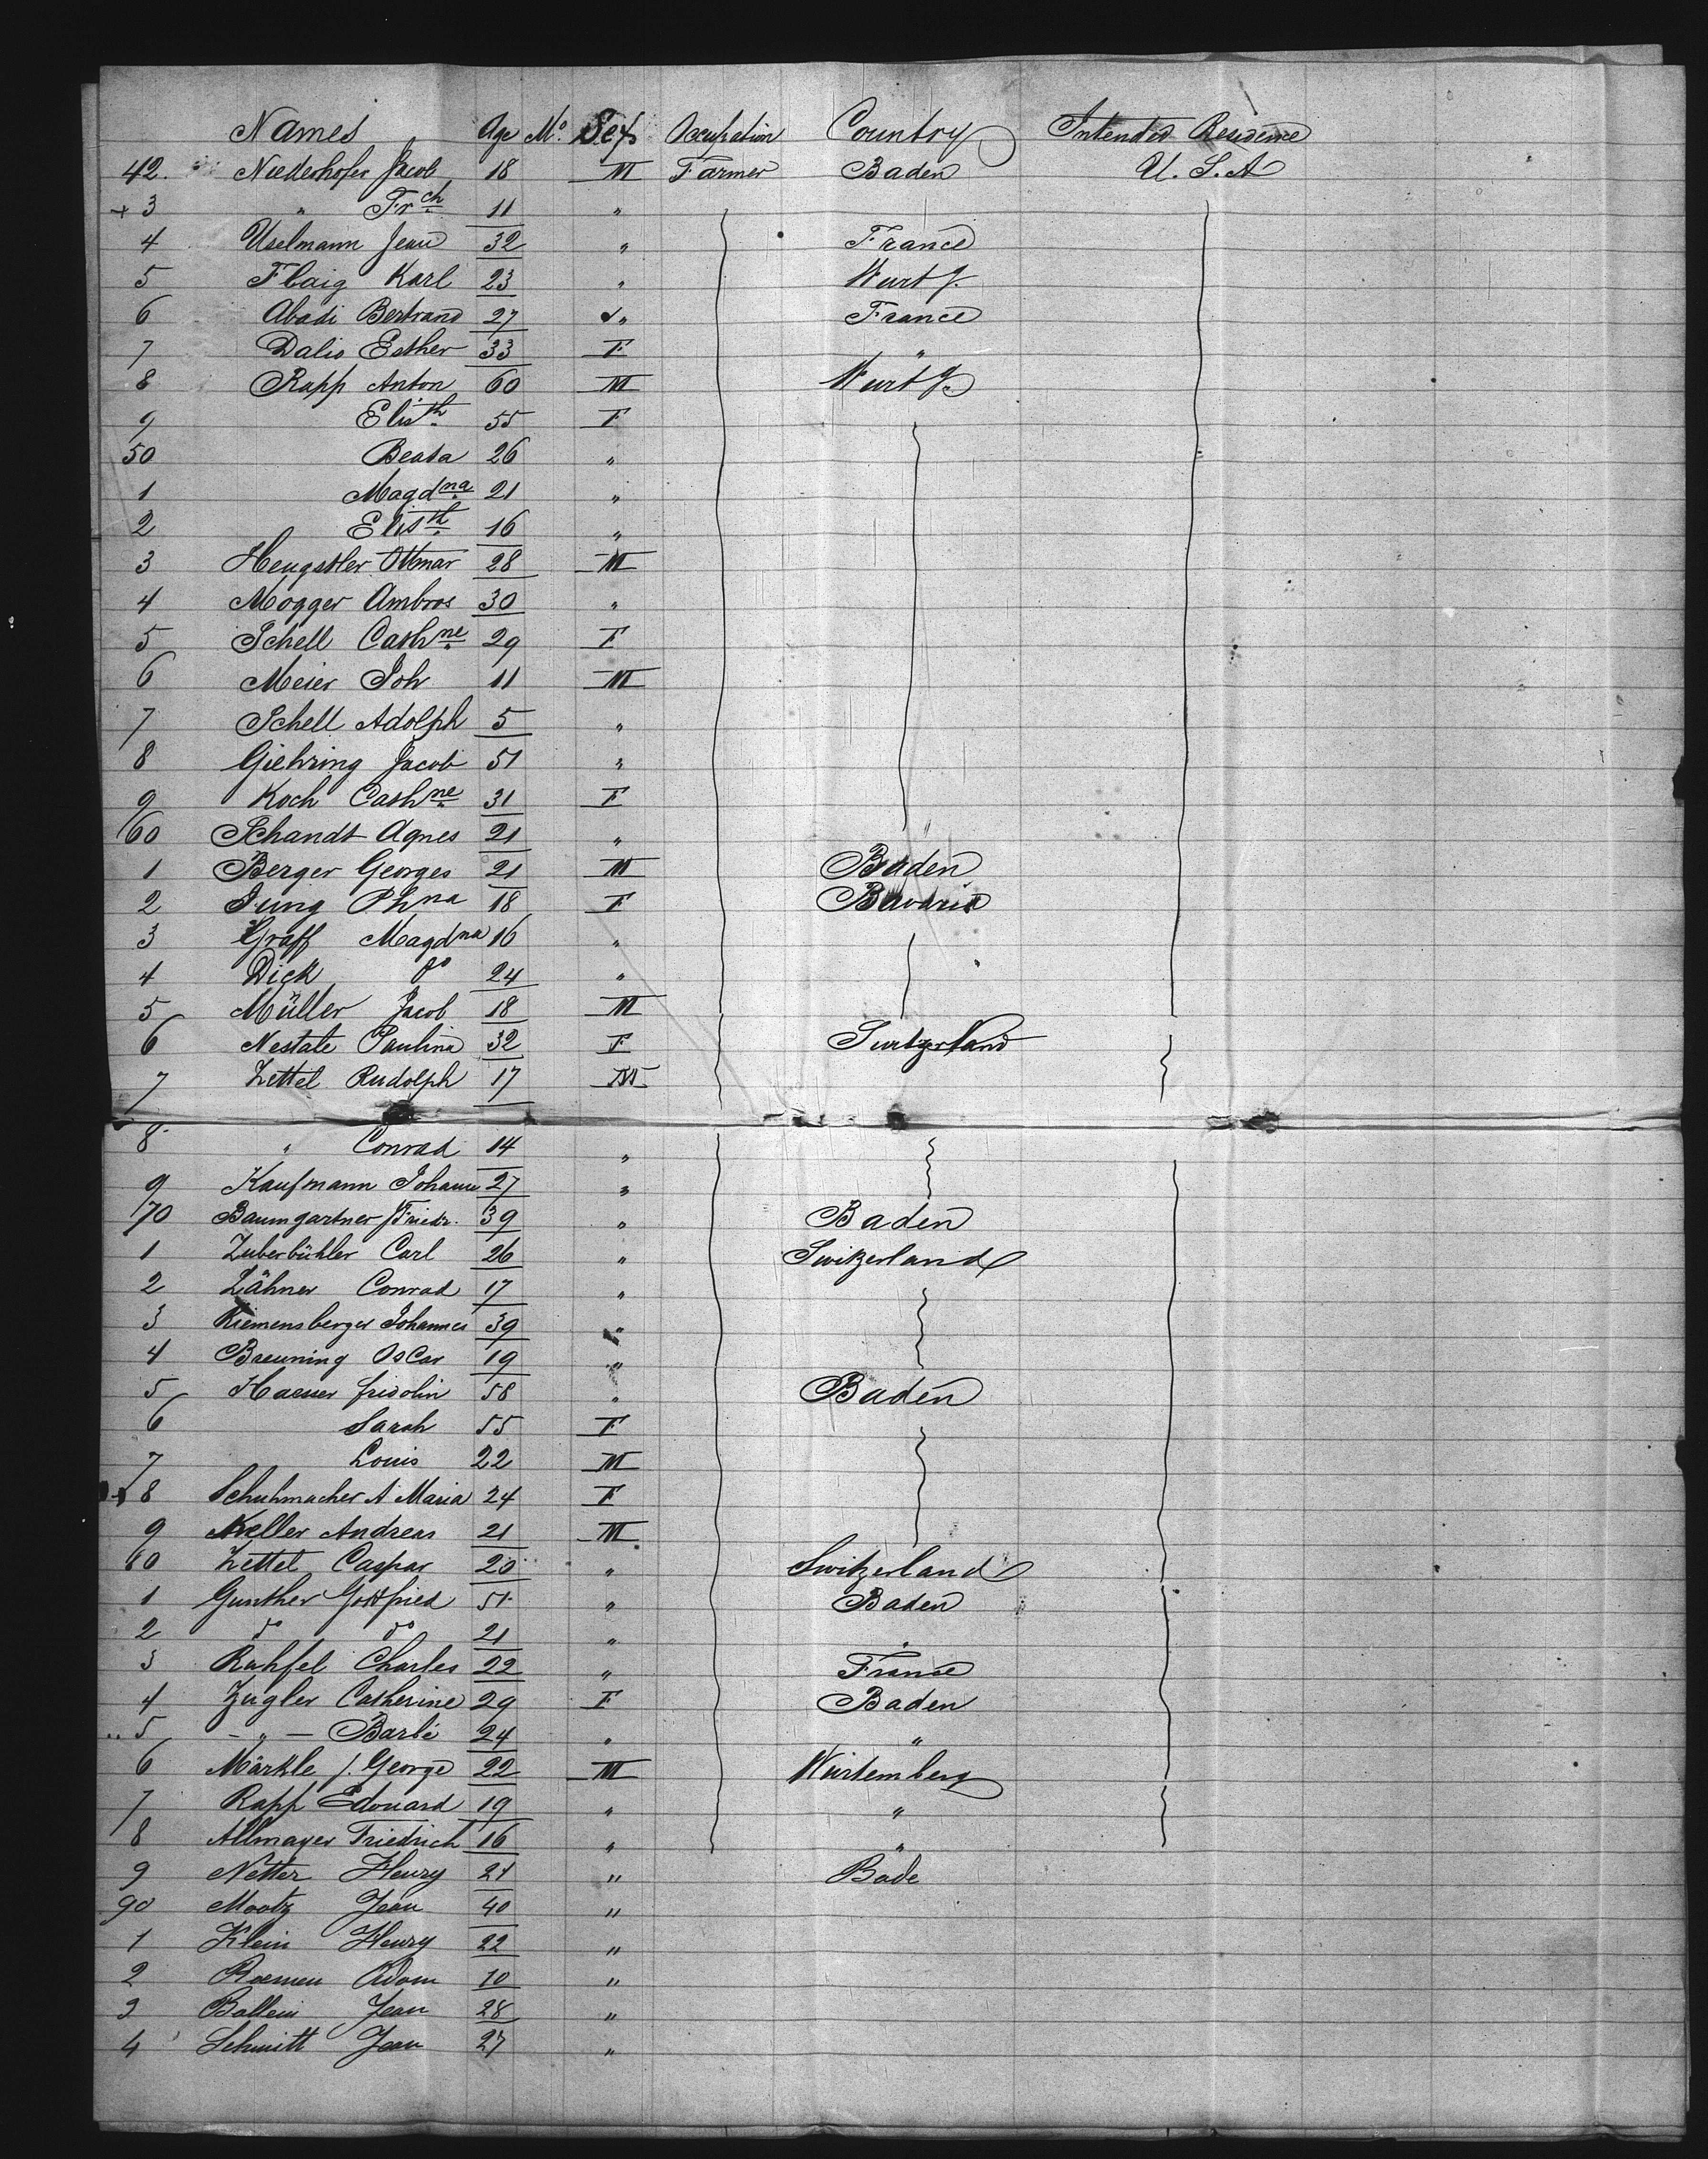 Names Age Mo Sex Occupation Country Intended Residence
42. Niederhofer Jacob 18 M Farmer Baden U.S.A
+3 " Frch 11 "
4 Uselmann Jean 32 " France
5 Flaig Karl 23 " Wurtg.
6 Abadi Bertrand 27 " France
7 Dalis Esther 33 F "
8 Rapp Anton 60 M Wurtg.
9 Elisth 55 F
50 Beata 26 "
1 Magdna 21 "
2 Elisth 16 "
3 Hengstler Ottmar 28 M
4 Mogger Ambros 30 "
5 Schell Cathne 29 F
6 Meier Joh 11 M
7 Schell Adolph 5 "
8 Giehring Jacob 51 "
9 Koch Cathne 31 F
60 Schandt Agnes 21 "
1 Berger Georges 21 M Baden
2 Jung Phna 18 F Bavaria
3 Graff Magdna 16 "
4 Dick do 24 "
5 Müller Jacob 18 M
6 Nestate Paulina 32 F Switzerland
7 Zettel Rudolph 17 M
8 " Conrad 14 "
9 Kaufmann Johann 27 "
70 Baumgartner Friedr. 39 " Baden
1 Zuberbühler Carl 26 " Switzerland
2 Zähner Conrad 17 "
3 Riemensberger Johannes 39 "
4 Breuning Oscar 19 "
5 fridolin 58 " Baden
6 Sarah 55 F
7 Louis 22 M
+8 Schuhmacher A Maria 24 F
9 Keller Andreas 21 M
80 Zettel Caspar 20 " Switzerland
1 Gunther Gottfried 51 " Baden
2 do do 21 " "
3 Ruhfel Charles 22 " France
4 Zugler Catherine 29 F Baden
5 - " - Barbe 24 " "
6 Märkle J. George 22 M Würtemberg
7 Rapp Edouard 19 " "
8 Allmayer Friedrich 16 " "
9 Netter Henry 21 " Bade
90 Mootz Jean 40 "
1 Klein Henry 22 "
2 Adam 10 "
3 Ballein Jean 28 "
4 Schmitt Jean 27 "